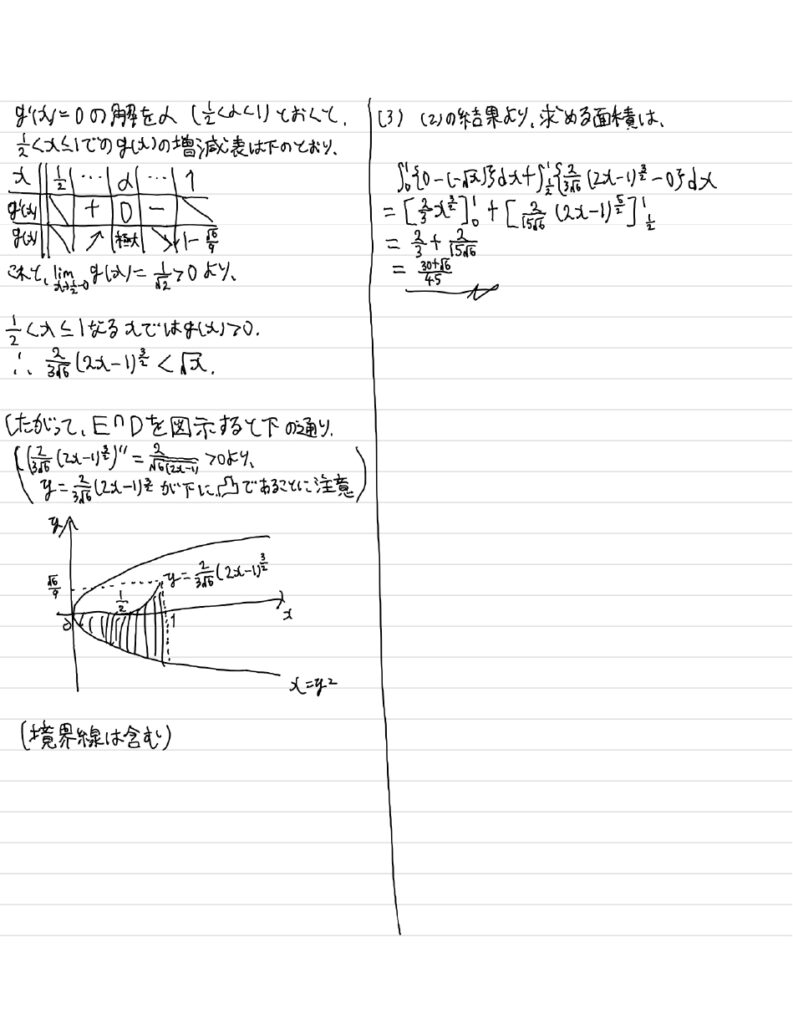 g'(x)=0の解をα (1/2<α<1) とおくと、
1/2<x≤1でのg(x)の増減表は下のとおり、
x 1/2 … α … 1
g'(x) ＼ + 0 − ＼
g(x) ＼ ↗ 極大 ↘ 1-√6/9
これと、lim_{x→1/2-0} g(x)=1/√2>0より、
1/2<x≤1なるxではg(x)>0.
∴ 2/(3√6) (2x-1)^{3/2} < √x.
したがって、E∩Dを図示すると下の通り、
((2/(3√6) (2x-1)^{3/2})''=2/√(6(2x-1))>0より、
y=2/(3√6) (2x-1)^{3/2}が下に凸であることに注意)
y
y=2/(3√6) (2x-1)^{3/2}
√6/9
1/2
0
1
x
x=y²
(境界線は含む)
(3) (2)の結果より、求める面積は、
∫_0^1{0-(-√x)}dx+∫_{1/2}^1{2/(3√6) (2x-1)^{3/2}-0}dx
=[2/3 x^{3/2}]_0^1+[2/(15√6) (2x-1)^{5/2}]_{1/2}^1
=2/3+2/(15√6)
=(30+√6)/45